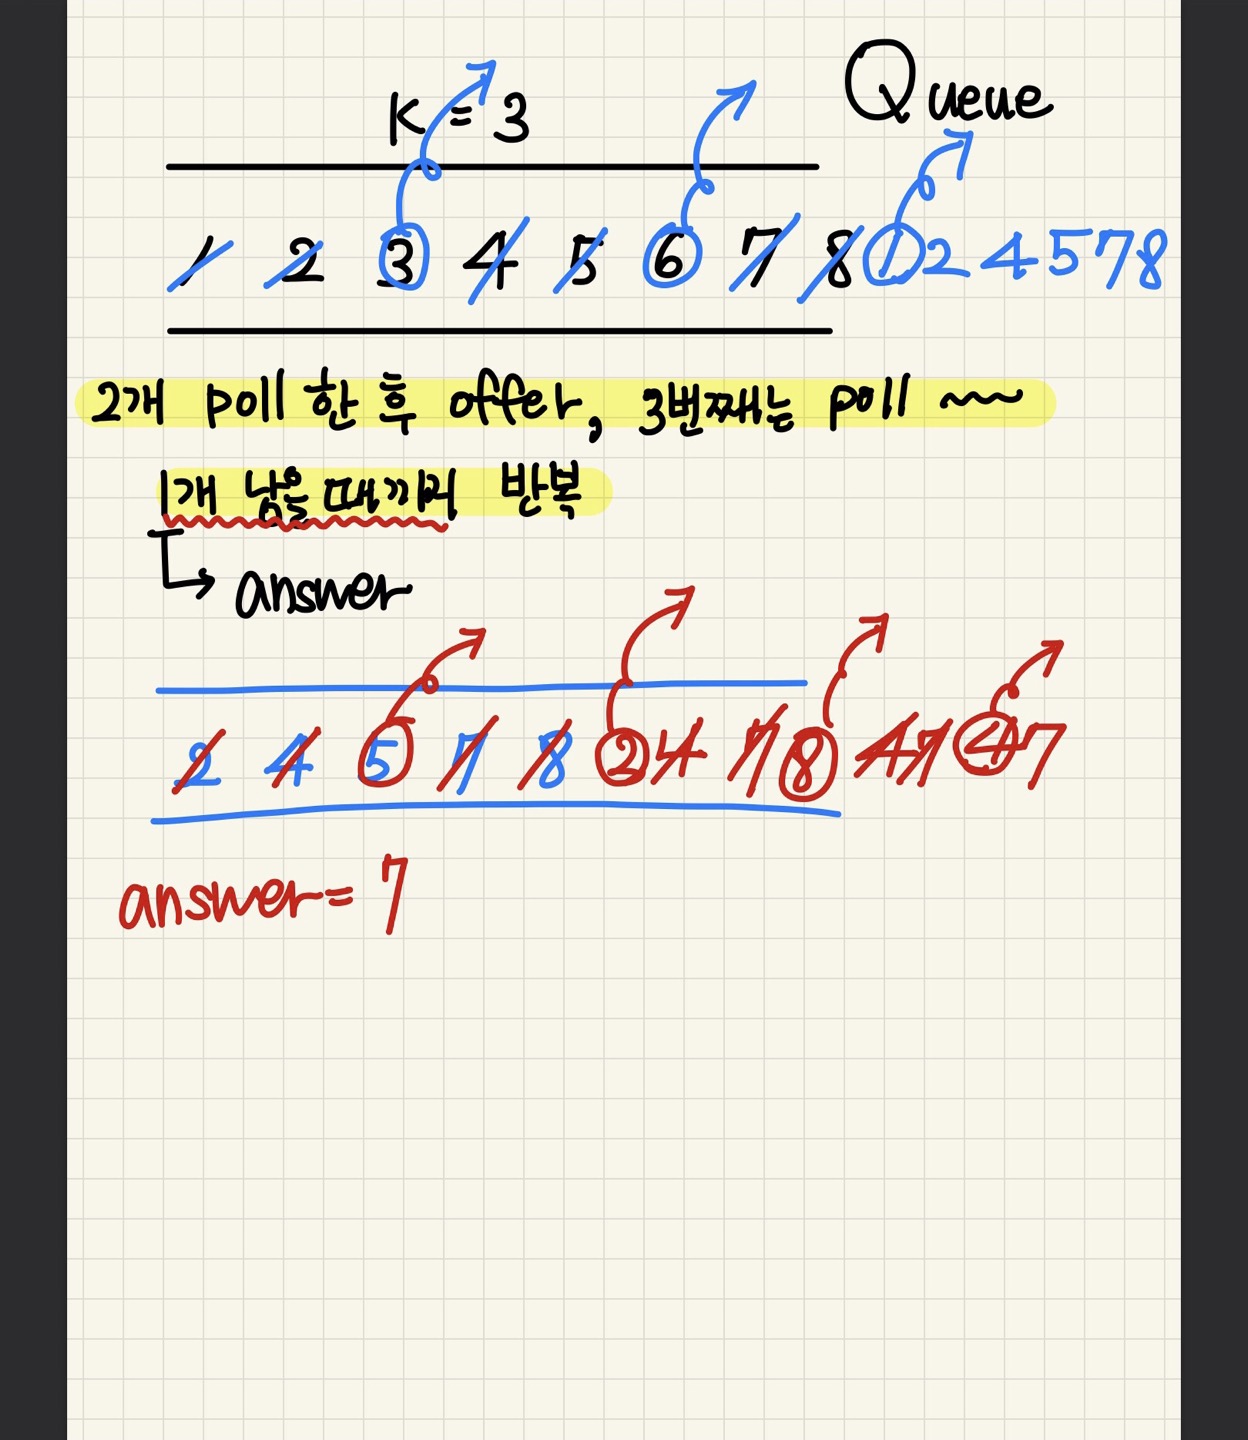 Queue
K = 3
1 2 3 4 5 6 7 8 1 2 4 5 7 8
2개 poll 한 후 offer, 3번째는 poll ~~
1개 남을때까지 반복
answer
2 4 5 7 8 2 4 7 8 4 7 4 7
answer = 7